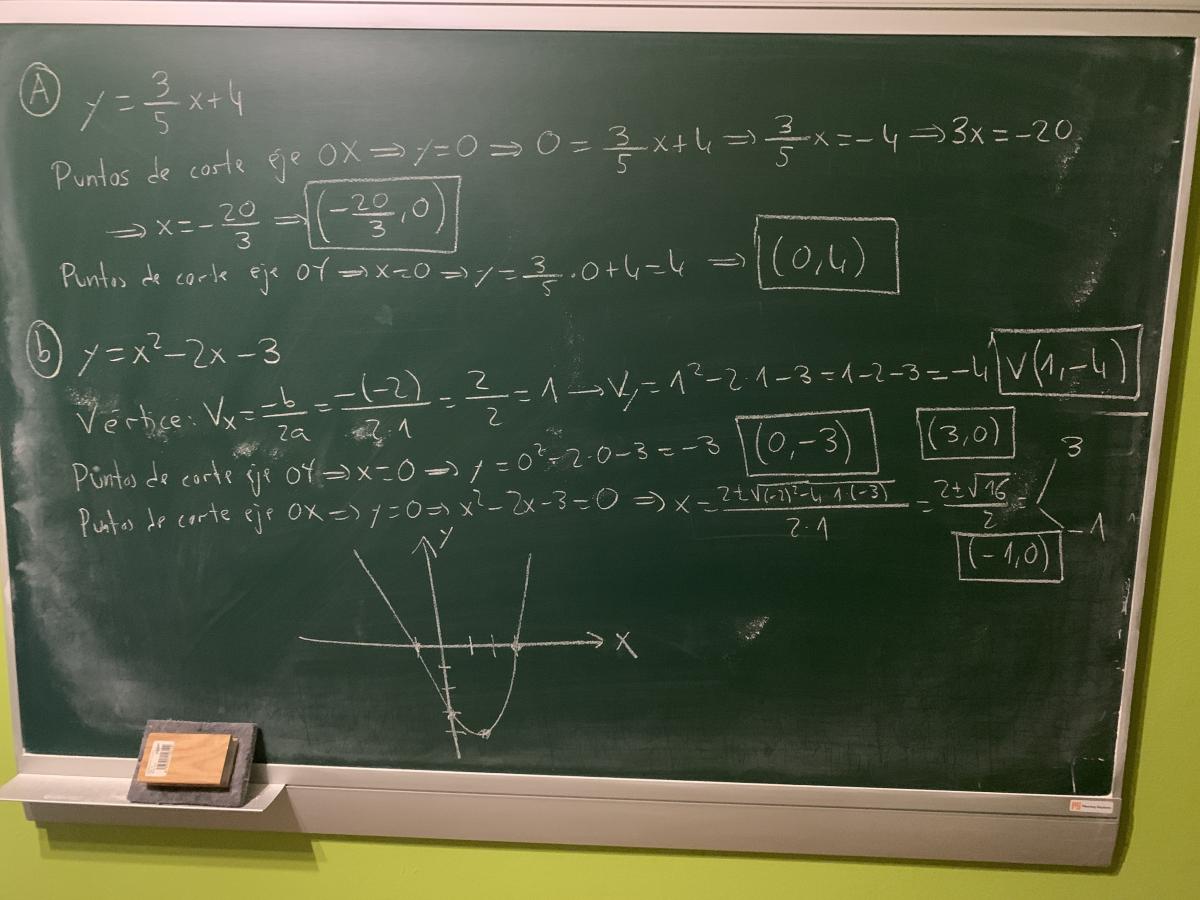 A y = 3/5 x + 4
Puntos de corte eje OX ⇒ y=0 ⇒ 0 = 3/5 x + 4 ⇒ 3/5 x = -4 ⇒ 3x = -20
⇒ x = -20/3 ⇒ (-20/3, 0)
Puntos de corte eje OY ⇒ x=0 ⇒ y = 3/5 · 0 + 4 = 4 ⇒ (0,4)
b y = x² - 2x - 3
Vértice: Vx = -b/2a = -(-2)/2·1 = 2/2 = 1 → Vy = 1² - 2·1 - 3 = 1 - 2 - 3 = -4 V(1,-4)
Puntos de corte eje OY ⇒ x=0 ⇒ y = 0² - 2·0 - 3 = -3 (0,-3) (3,0)
Puntos de corte eje OX ⇒ y=0 ⇒ x² - 2x - 3 = 0 ⇒ x = 2±√(-2)²-4·1·(-3)/2·1 = 2±√16/2 = 3
-1
(-1,0)
Y
X